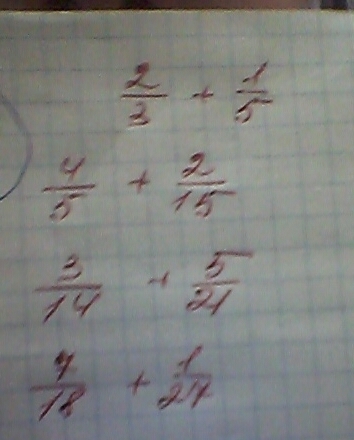 2/3 + 1/5
4/5 + 2/15
3/14 + 5/21
7/18 + 1/27